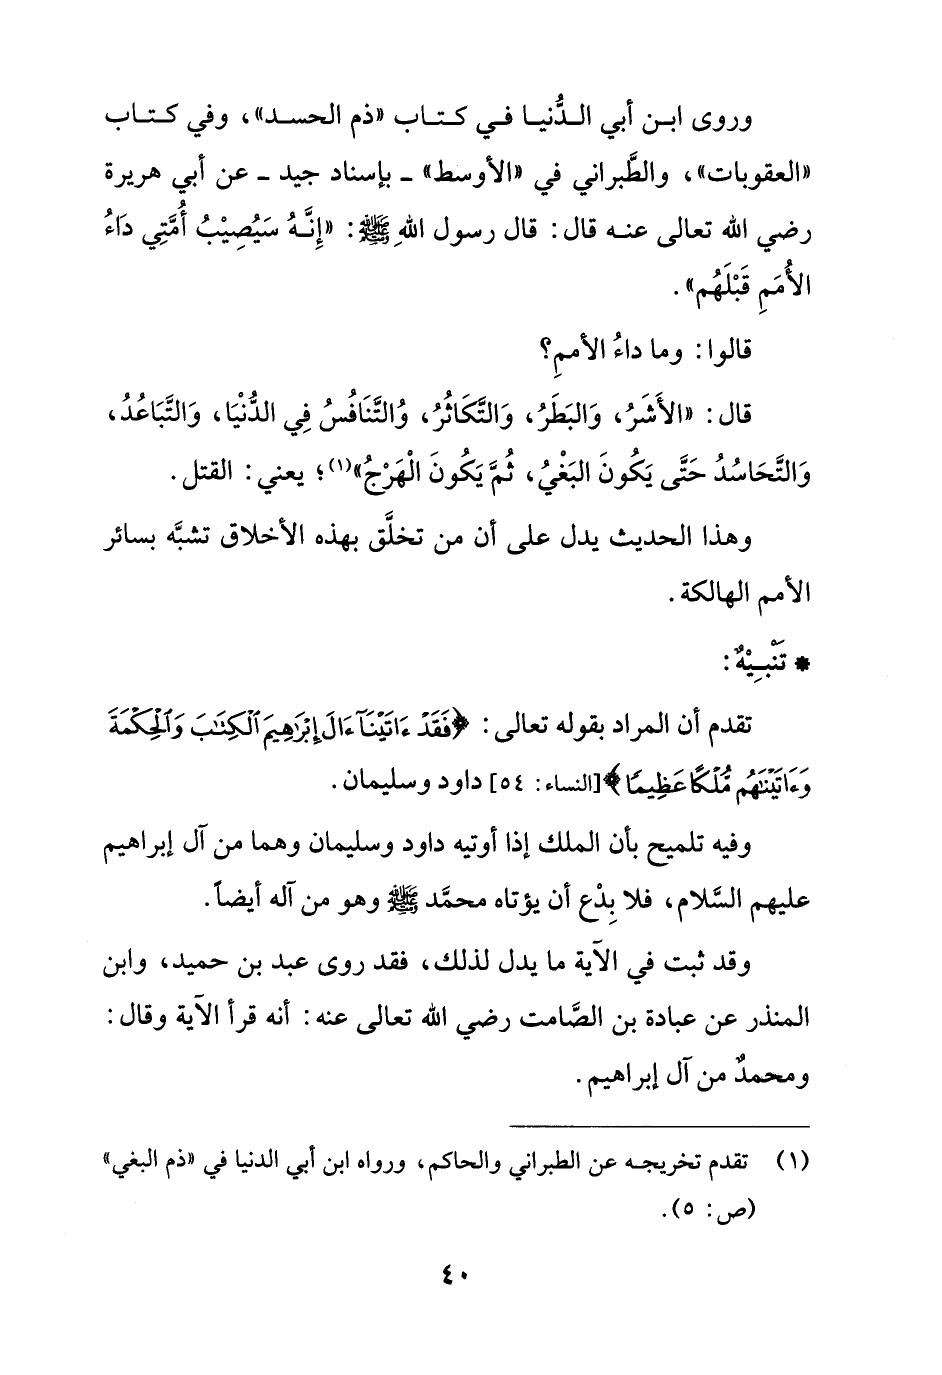 وروى ابـن أبي الـدُّنيـا فـي كـتـاب «ذم الحسـد»، وفي كـتـاب
«العقوبات»، والطَّبراني في «الأوسط» ـ بإسناد جيد ـ عن أبي هريرة
رضي الله تعالى عنـه قال: قال رسول اللهِ ﷺ: «إِنَّـهُ سَيُصِيْبُ أُمَّتِي دَاءُ
الأُمَمِ قَبْلَهُم».
قالوا: وما داءُ الأممِ؟
قال: «الأَشَرُ، وَالبَطَرُ، وَالتَّكَاثُرُ، وُالتَّنَافُسُ فِي الدُّنْيَا، وَالتَّبَاعُدُ،
وَالتَّحَاسُدُ حَتَّى يَكُونَ البَغْيُ، ثُمَّ يَكُونَ الْهَرْجُ»(١)؛ يعني: القتل.
وهذا الحديث يدل على أن من تخلَّق بهذه الأخلاق تشبَّه بسائر
الأمم الهالكة.
* تَنْبـِيْهٌ:
تقدم أن المراد بقوله تعالى: ﴿فَقَدْ ءَاتَيْنَآ ءَالَ إِبْرَٰهِيمَ ٱلْكِتَٰبَ وَٱلْحِكْمَةَ
وَءَاتَيْنَٰهُم مُّلْكًا عَظِيمًا﴾[النساء: ٥٤] داود وسليمان.
وفيه تلميح بأن الملك إذا أوتيه داود وسليمان وهما من آل إبراهيم
عليهم السَّلام، فلا بِدْع أن يؤتاه محمَّد ﷺ وهو من آله أيضاً.
وقد ثبت في الآية ما يدل لذلك، فقد روى عبد بن حميد، وابن
المنذر عن عبادة بن الصَّامت رضي الله تعالى عنه: أنه قرأ الآية وقال:
ومحمدٌ من آل إبراهيم.
(١) تقدم تخريجـه عن الطبراني والحاكم، ورواه ابن أبي الدنيا في «ذم البغي»
(ص: ٥).
٤٠